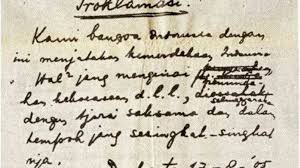 Proklamasi.
Kami bangsa Indonesia dengan
ini menjatakan kemerdekaan Indonesia
Hal² jang mengenai
kekoeasaan d.l.l.,
dengan tjara saksama dan dalam
tempoh jang sesingkat-singkat
nja.
17-8-'05